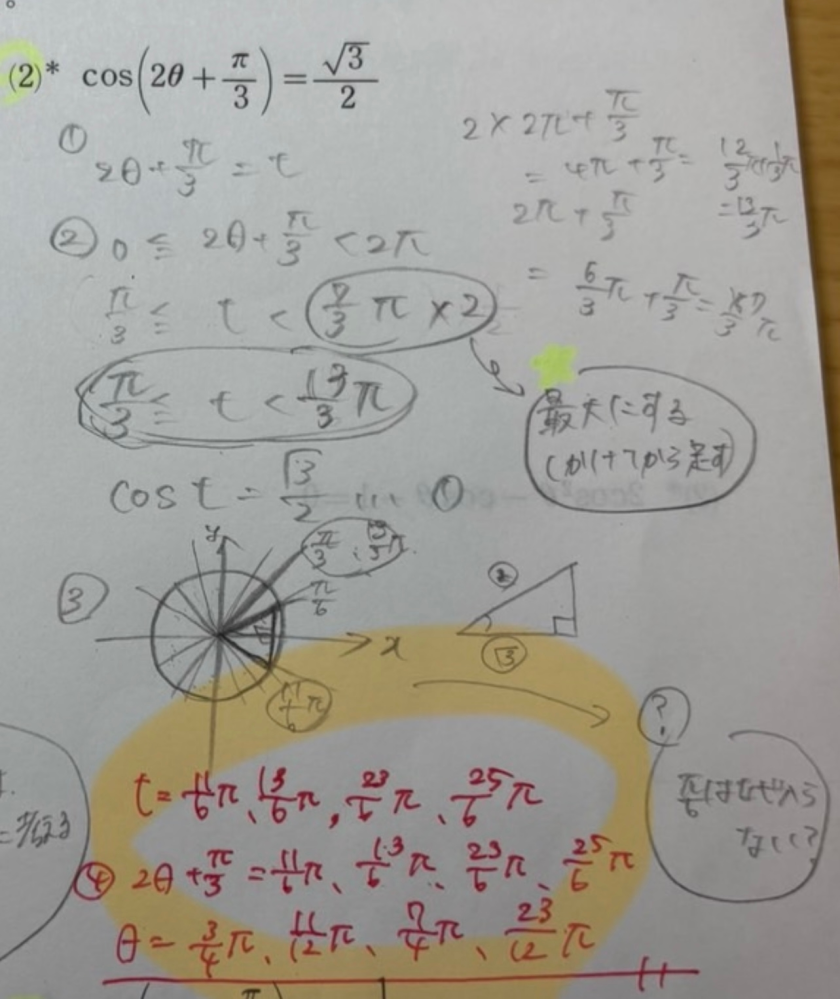 (2)* cos(2θ + π/3) = √3/2
① 2θ + π/3 = t
② 0 ≦ 2θ + π/3 < 2π
π/3 ≦ t < 7/3 π × 2
π/3 ≦ t < 13/3 π
cos t = √3/2 … ①
2 × 2π + π/3
= 4π + π/3 = 12/3 π + 1/3 π
= 13/3 π
2π + π/3
= 6/3 π + π/3 = 7/3 π
最大にする
(かけてから足す)
③
y
π/3、13/3 π
π/6
x
11/6 π
2
√3
?
π/6はなぜ入ら
ない?
t = 11/6 π、13/6 π、23/6 π、25/6 π
④ 2θ + π/3 = 11/6 π、13/6 π、23/6 π、25/6 π
θ = 3/4 π、11/12 π、7/4 π、23/12 π